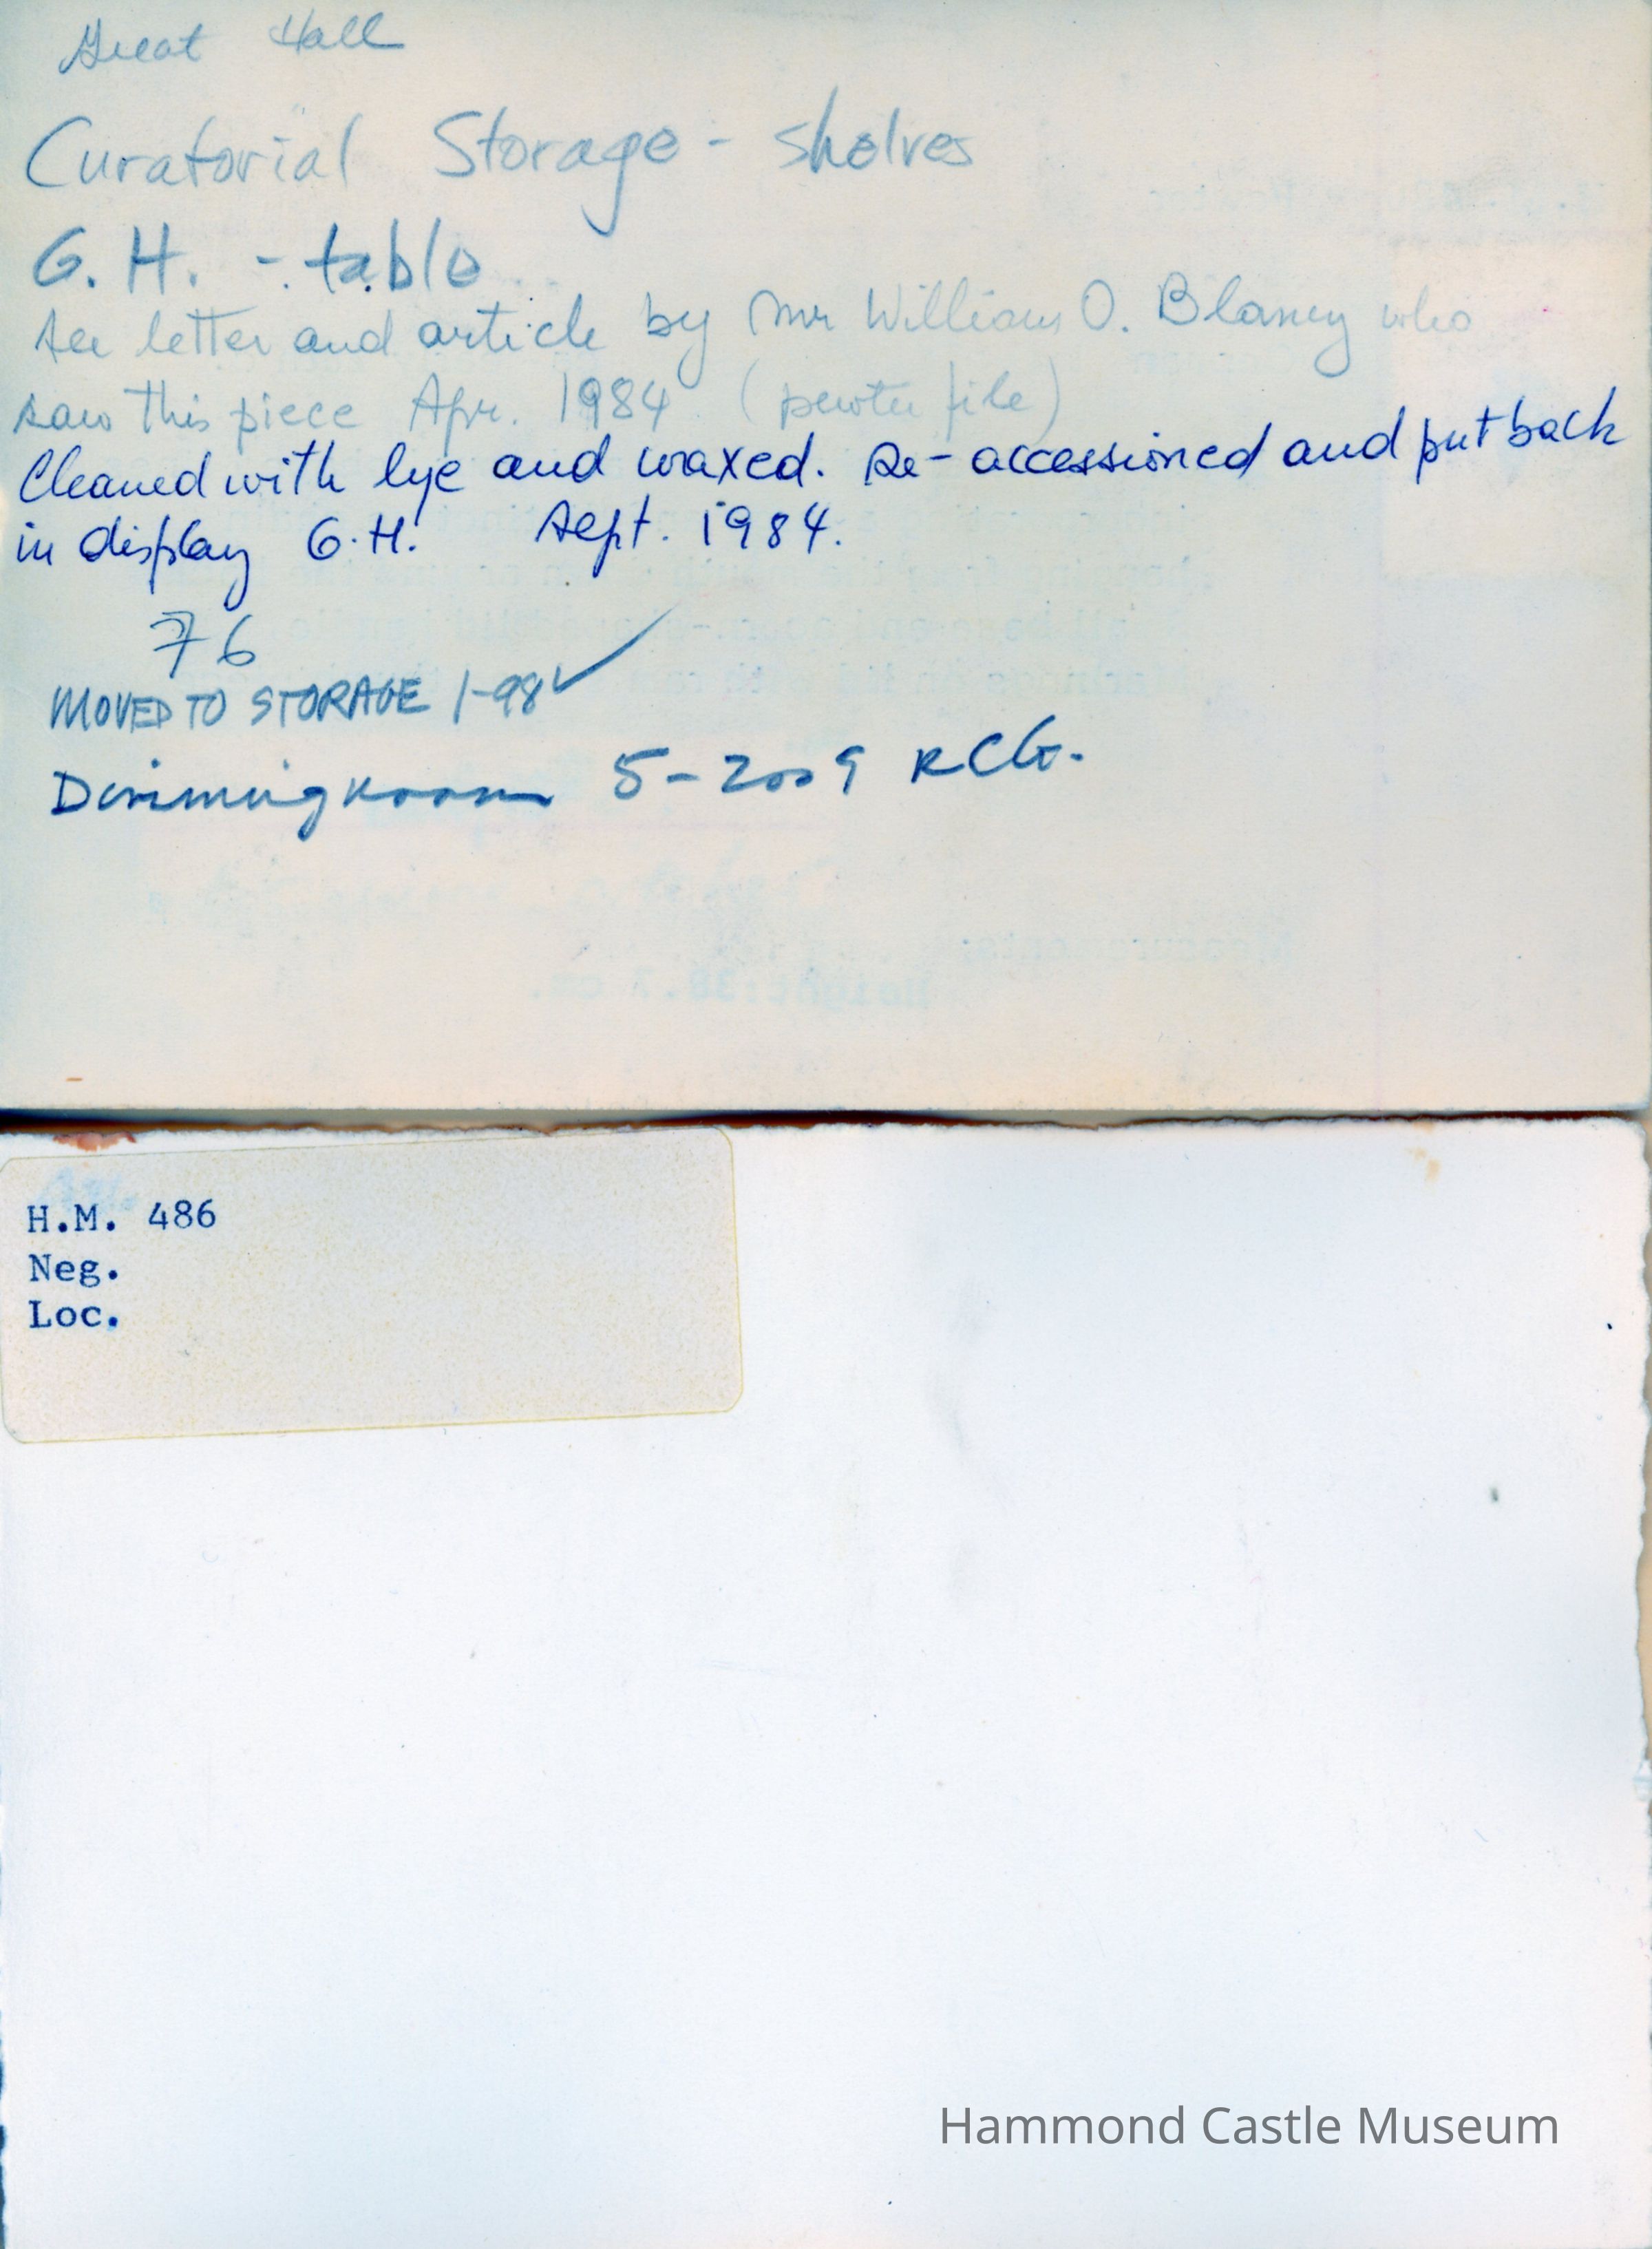 Great Hall
Curatorial Storage - shelves
G.H. - table
See letter and article by Mr William O. Blaney who
saw this piece Apr. 1984 (pewter file)
Cleaned with lye and waxed. Re-accessioned and put back
in display G.H. Sept. 1984.
76
MOVED TO STORAGE 1-98 ✓
5-2009 RCG.
H.M. 486
Neg.
Loc.
Hammond Castle Museum